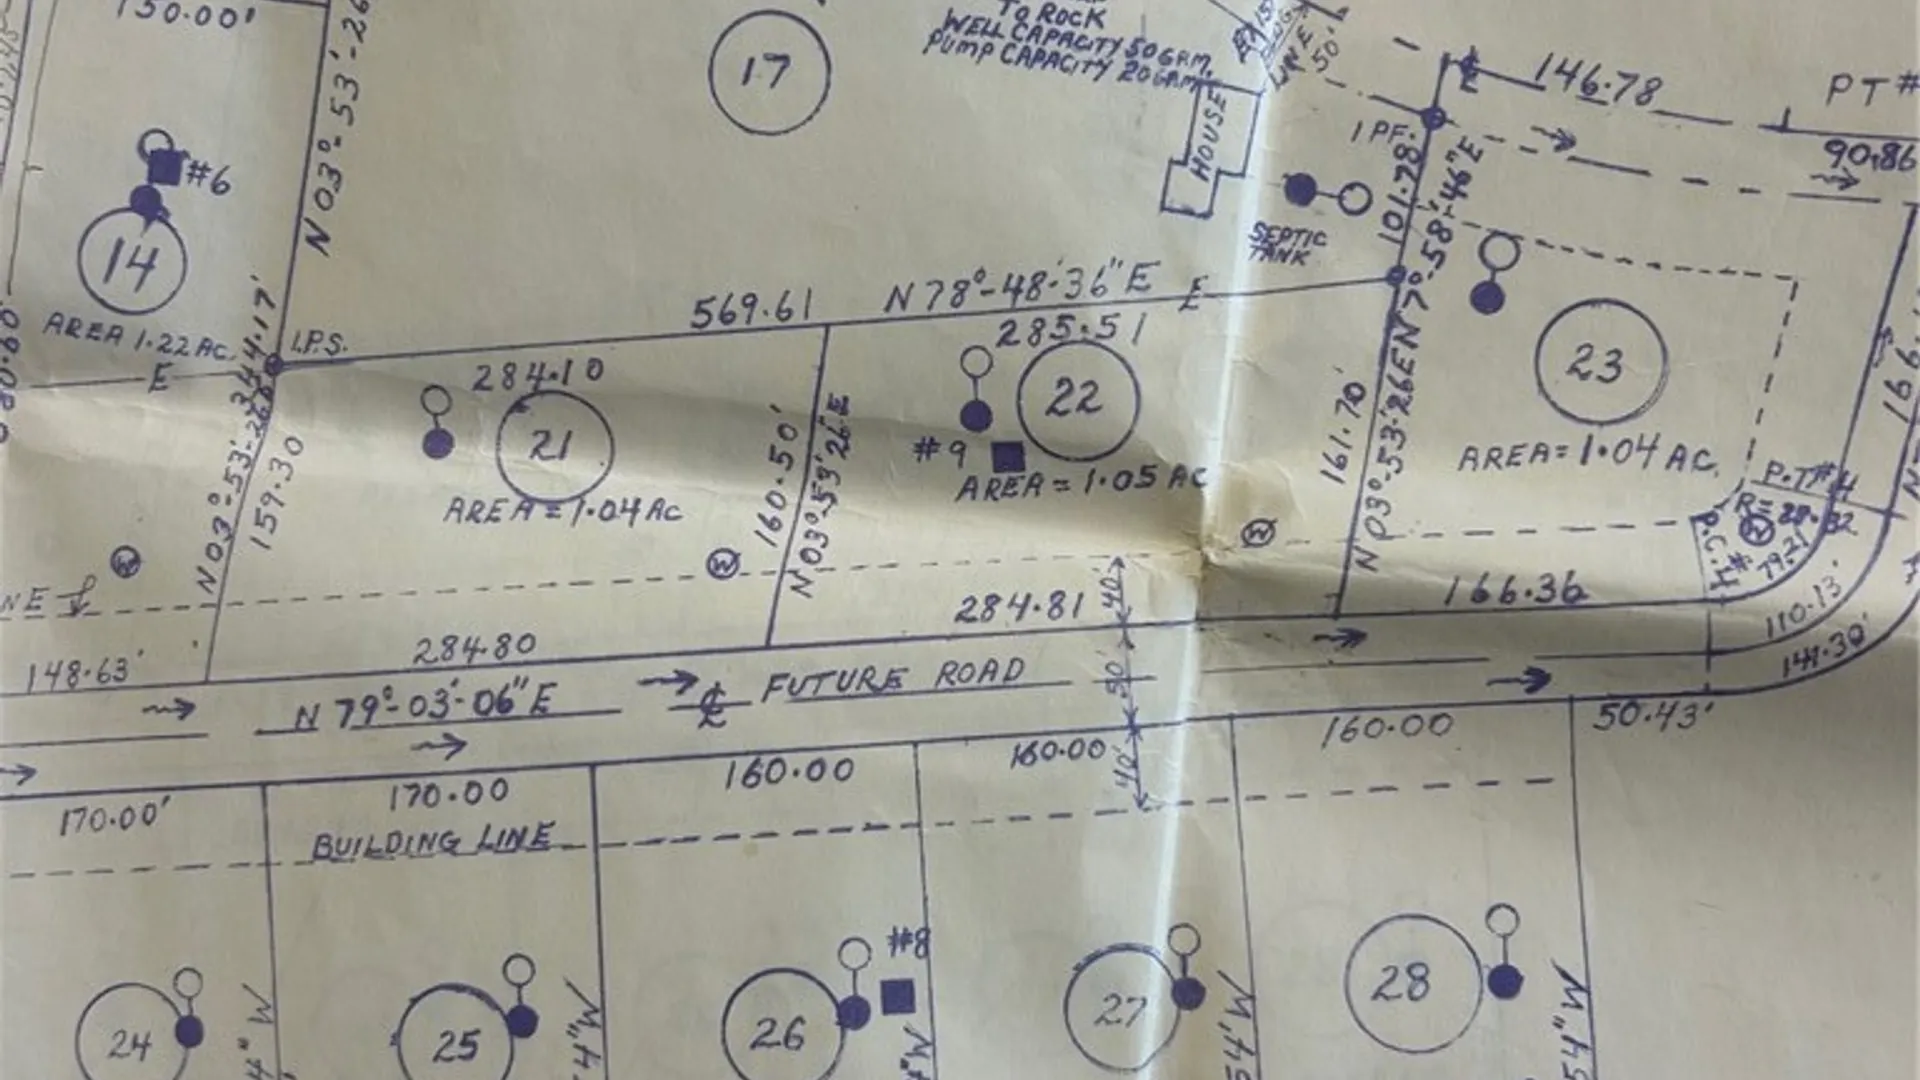 150.00'
N 03°-53'-26
17
TO ROCK
WELL CAPACITY 50 G.P.M.
PUMP CAPACITY 20 G.P.M.
LINE 50'
HOUSE
146.78
PT#
I PF.
90.86
101.78'
N 7°-58'-46"E
#6
14
AREA 1.22 AC.
344.17'
I.P.S.
E
SEPTIC
TANK
569.61
N 78°-48'-36" E
E
284.10
285.51
21
AREA = 1.04 AC
22
#9
AREA = 1.05 AC
23
AREA = 1.04 AC.
N 03°-53'-26
159.30
160.50'
N 03°-53'26"E
161.70'
N 03°-53'26E
P.T#4
P.C.#
79.21
W
W
W
W
148.63'
284.80
284.81
40'
166.36
110.13'
141.30'
50'
N 79°-03'-06" E
FUTURE ROAD
50.43'
170.00'
170.00
160.00
160.00
160.00
40'
BUILDING LINE
24
25
26
#8
27
28
4" W
4" W
54' W
54" W